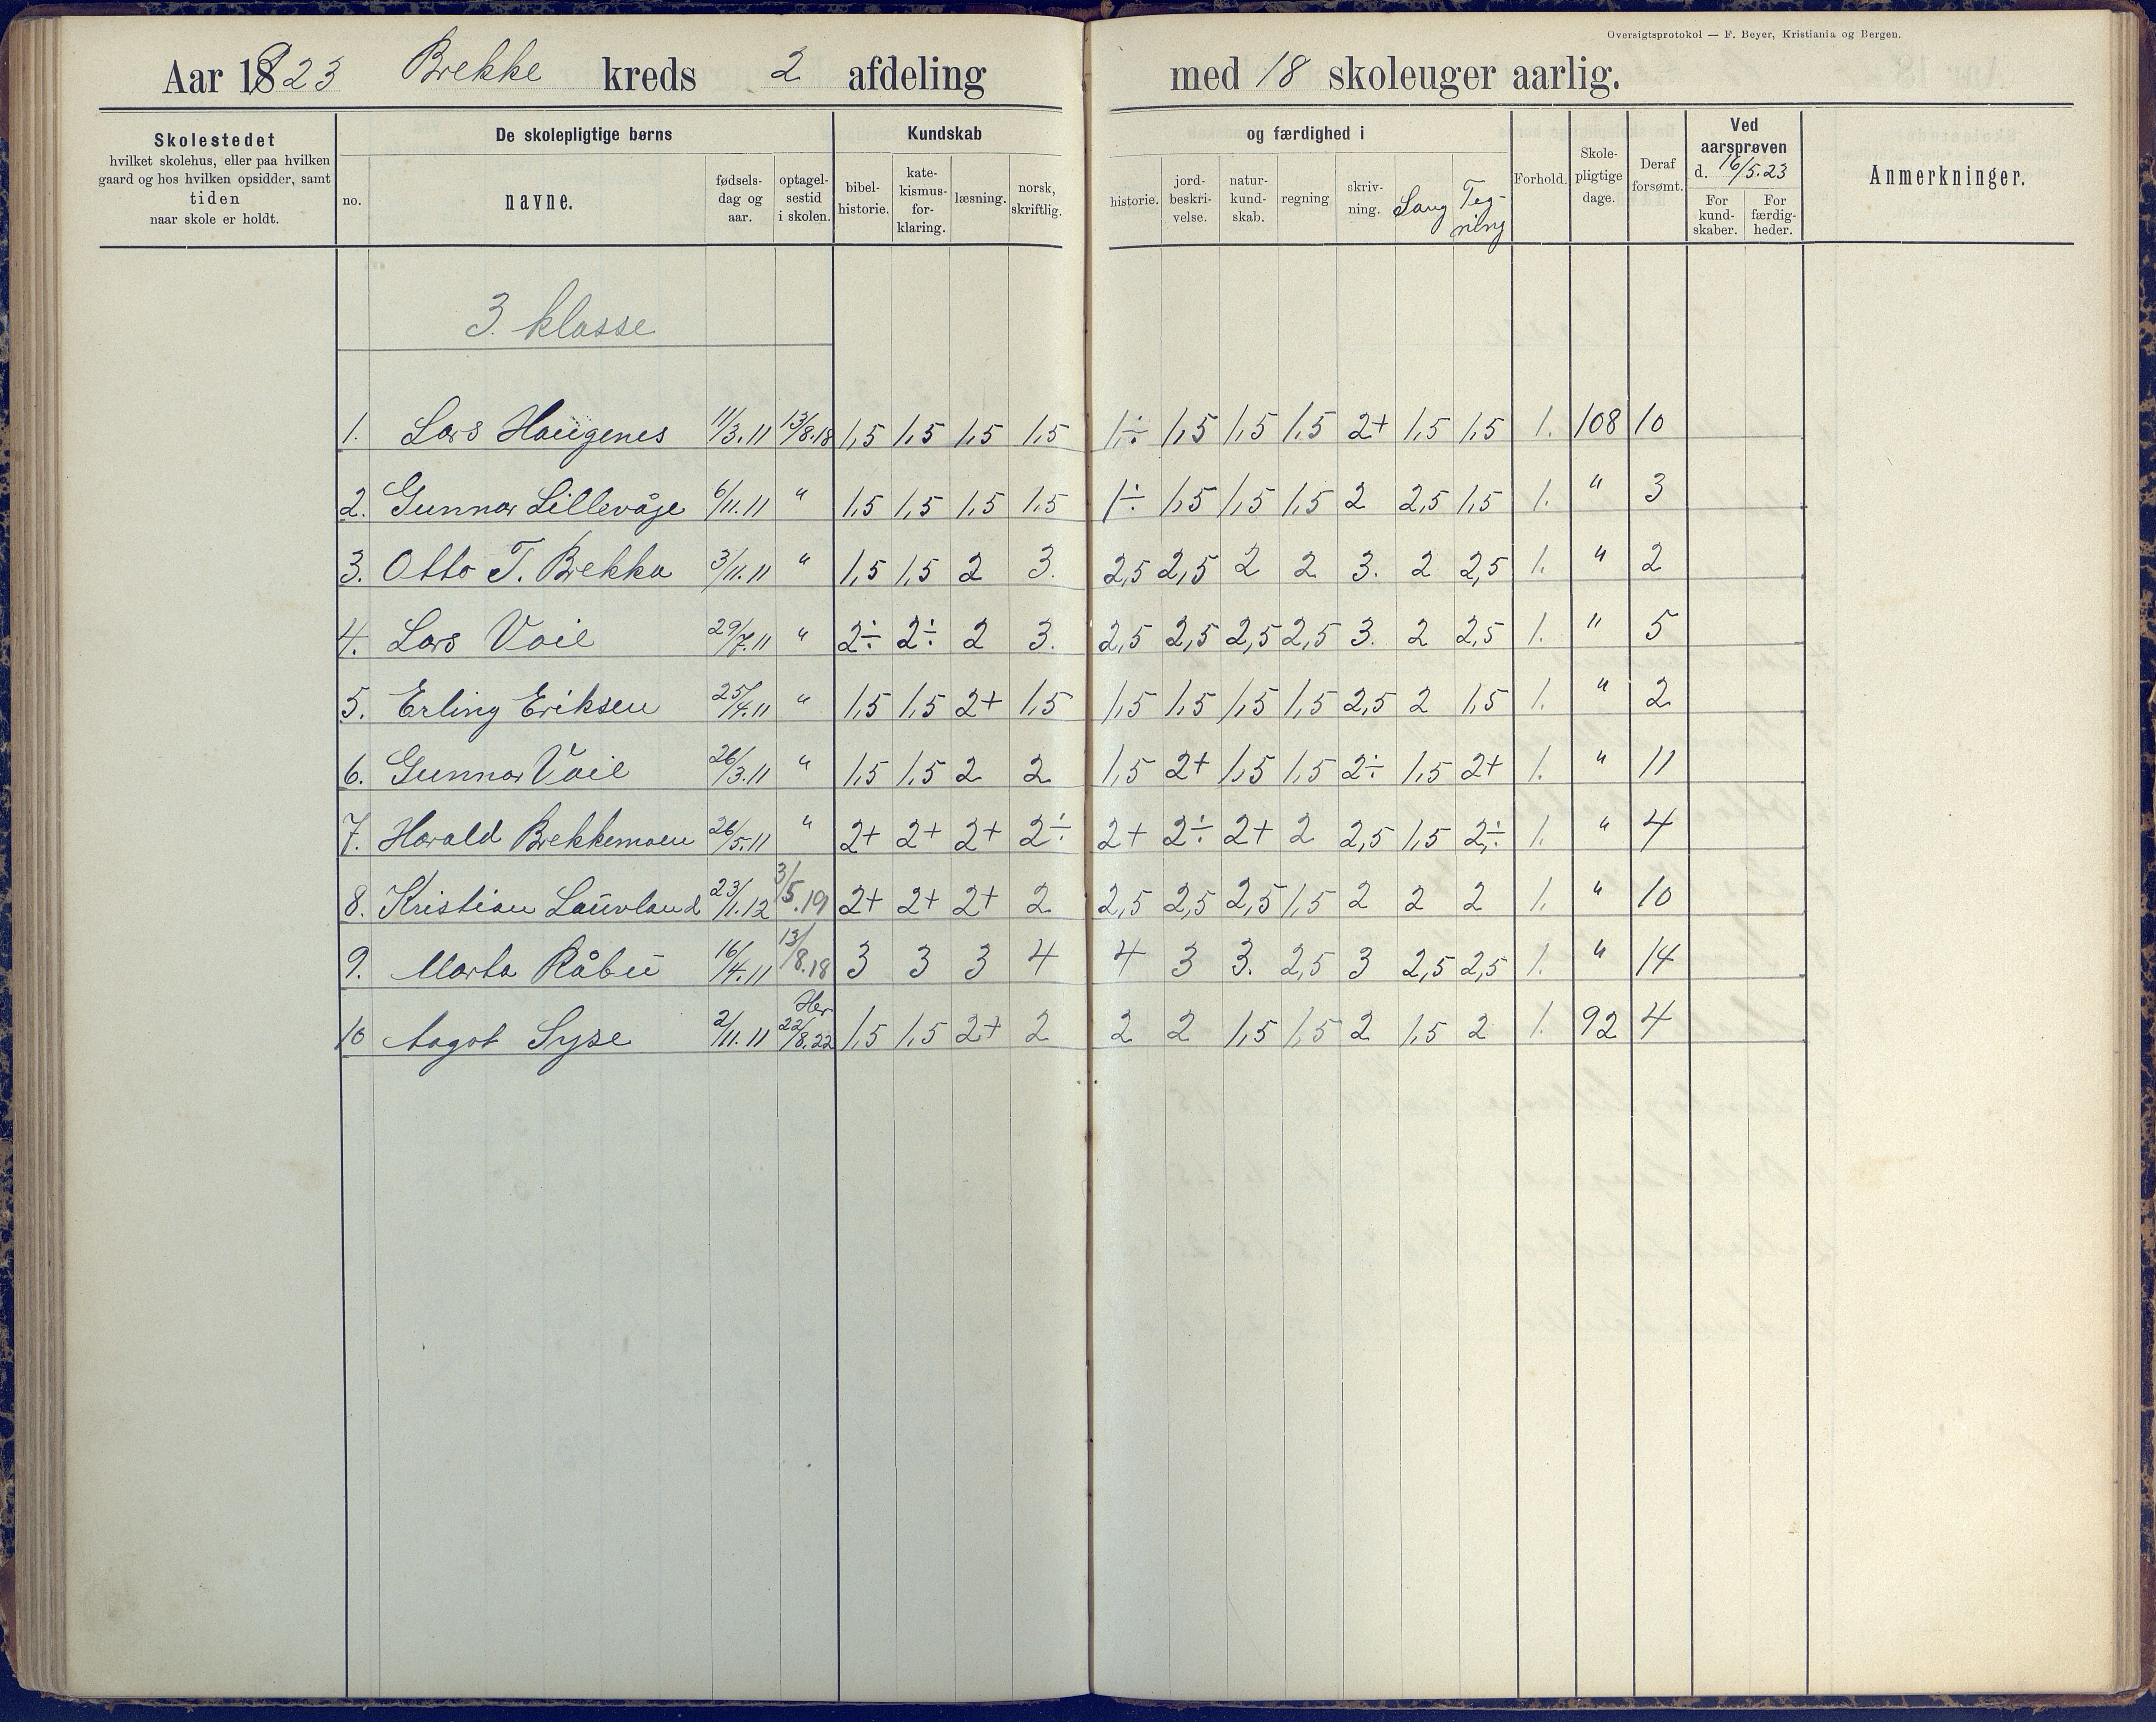 Oversigtsprotokol — F. Beyer, Kristiania og Bergen.
Aar 1923 Brekke kreds 2 afdeling med 18 skoleuger aarlig.
Skolestedet
hvilket skolehus, eller paa hvilken
gaard og hos hvilken opsidder, samt
tiden
naar skole er holdt.
De skolepligtige børns
no.
navne.
fødsels-
dag og
aar.
optagel-
sestid
i skolen.
Kundskab
bibel-
historie.
kate-
kismus-
for-
klaring.
læsning.
norsk,
skriftlig.
og færdighed i
historie.
jord-
beskri-
velse.
natur-
kund-
skab.
regning
skriv-
ning.
Sang
Teg-
ning
Forhold.
Skole-
pligtige
dage.
Deraf
forsømt.
Ved
aarsprøven
d. 16/5.23
For
kund-
skaber.
For
færdig-
heder.
Anmerkninger.
3. klasse
1. Lars Haugenes 11/3.11 13/8.18 1,5 1,5 1,5 1,5 1,÷ 1,5 1,5 1,5 2+ 1,5 1,5 1. 108 10
2. Gunnar Lillevåje 6/11.11 " 1,5 1,5 1,5 1,5 1÷ 1,5 1,5 1,5 2 2,5 1,5 1. " 3
3. Otto T. Brekka 3/11.11 " 1,5 1,5 2 3. 2,5 2,5 2 2 3. 2 2,5 1. " 2
4. Lars Vail 29/7.11 " 2÷ 2÷ 2 3. 2,5 2,5 2,5 2,5 3. 2 2,5 1. " 5
5. Erling Eriksen 25/4.11 " 1,5 1,5 2+ 1,5 1,5 1,5 1,5 1,5 2,5 2 1,5 1. " 2
6. Gunnar Vail 26/3.11 " 1,5 1,5 2 2 1,5 2+ 1,5 1,5 2÷ 1,5 2+ 1. " 11
7. Harald Brekkemoen 26/5.11 " 2+ 2+ 2+ 2÷ 2+ 2÷ 2+ 2 2,5 1,5 2,÷ 1. " 4
8. Kristian Lauvland 23/1.12 3/5.19 2+ 2+ 2+ 2 2,5 2,5 2,5 1,5 2 2 2 1. " 10
9. Marta Råbu 16/4.11 13/8.18 3 3 3 4 4 3 3. 2,5 3 2,5 2,5 1. " 14
10 Aagot Syse 2/11.11 Her 22/8.22 1,5 1,5 2+ 2 2 2 1,5 1,5 2 1,5 2 1. 92 4